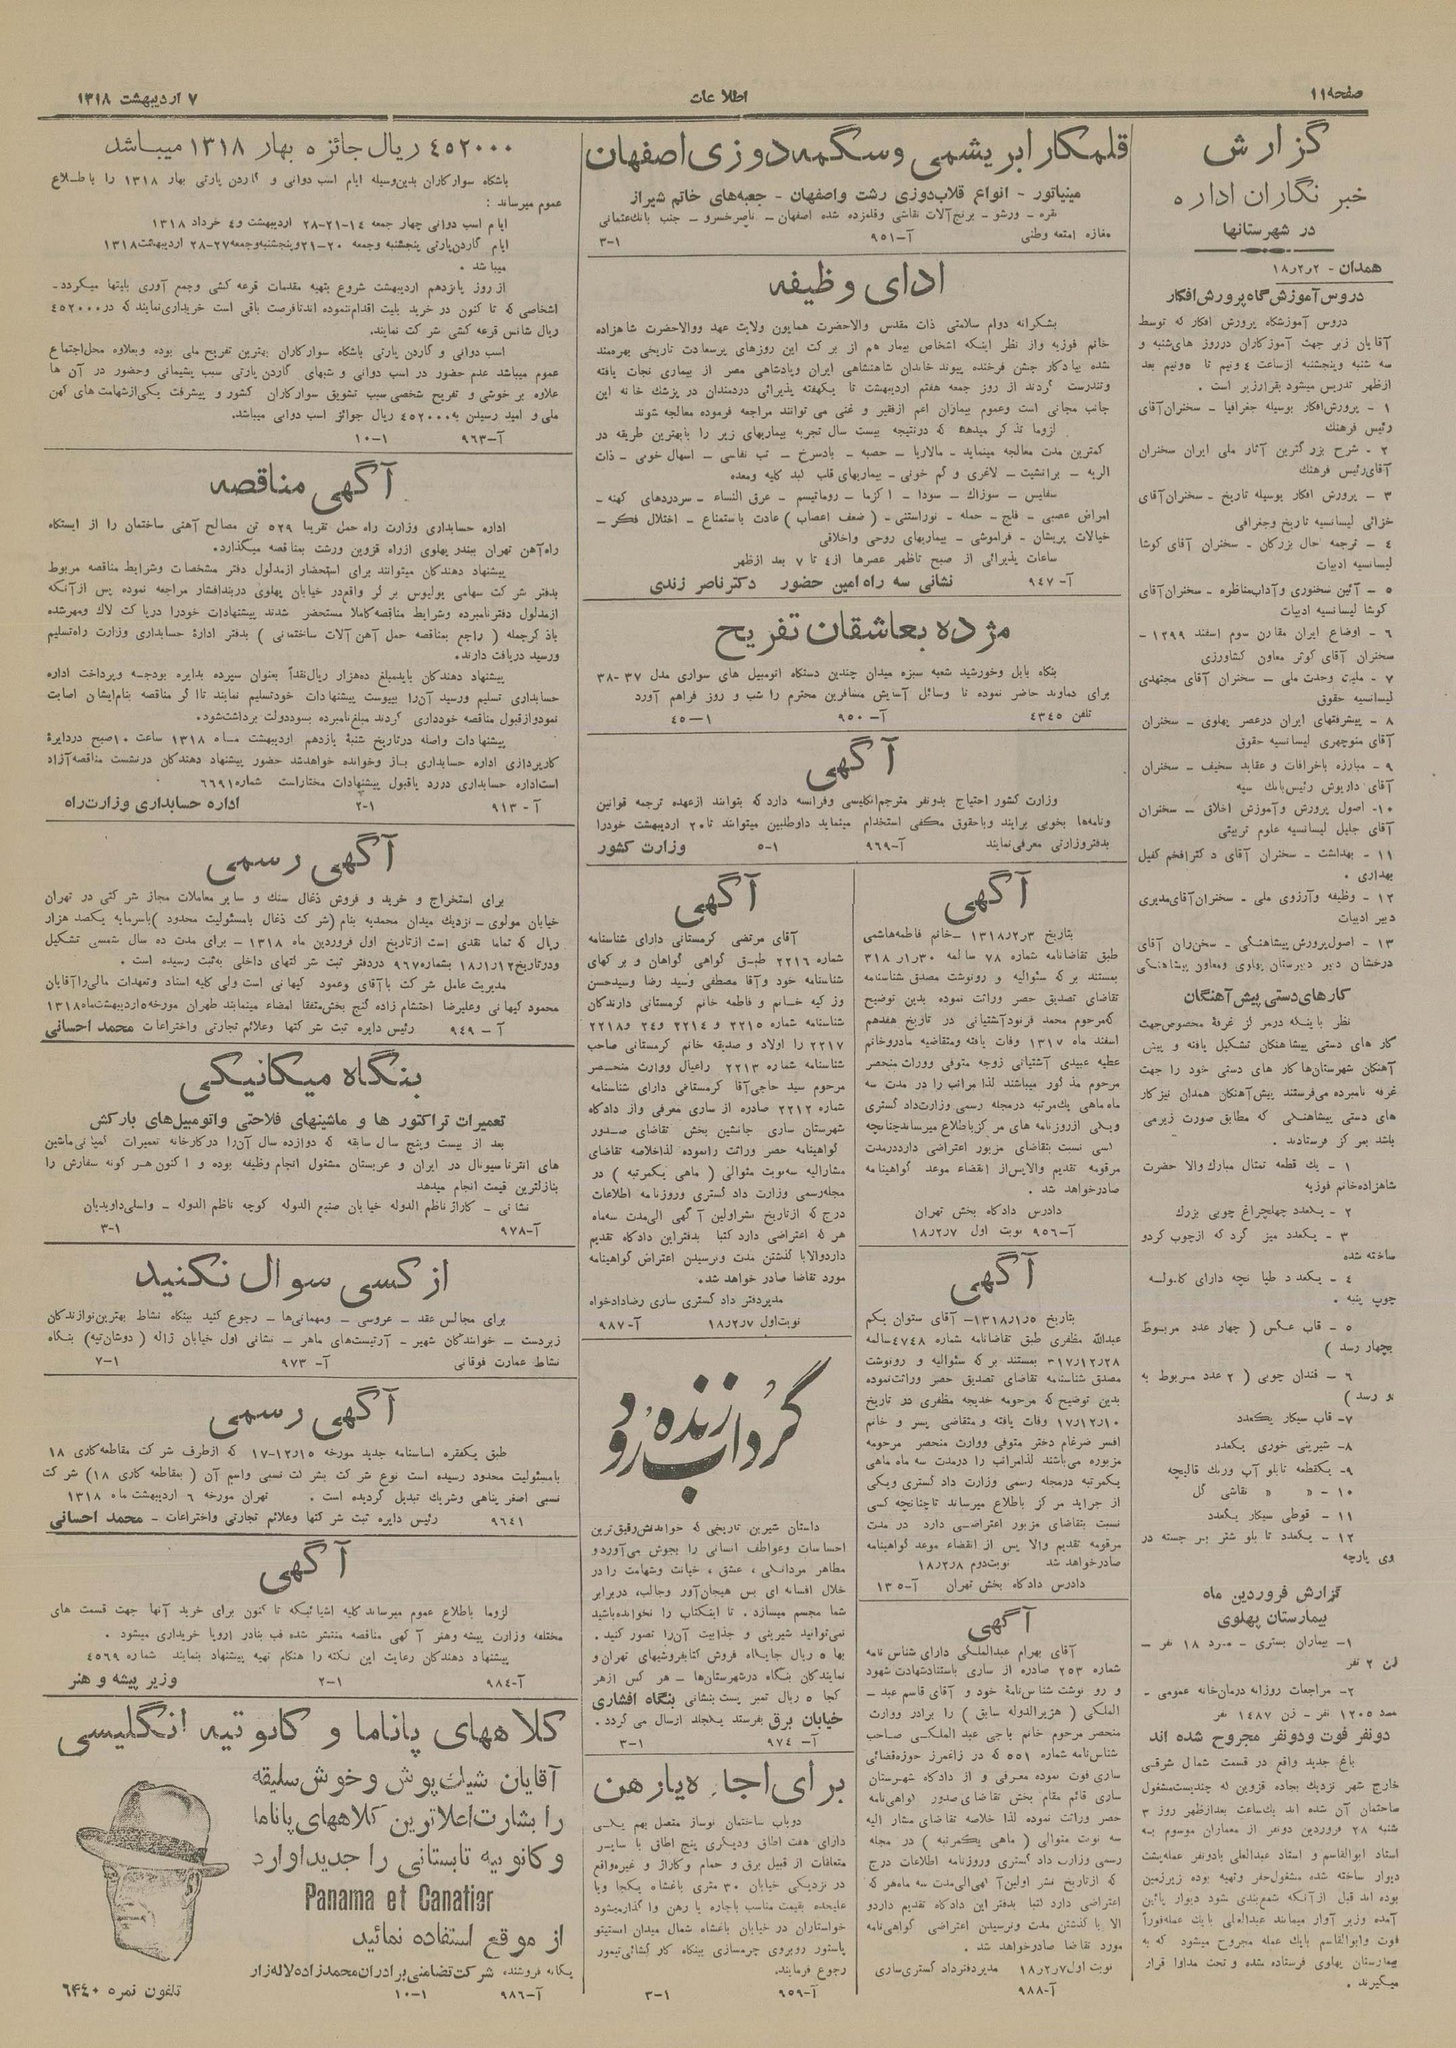 صفحه ۱۱
اطلاعات
۷ اردیبهشت ۱۳۱۸
گزارش
خبر نگاران اداره
در شهرستانها
همدان - ۱۸٫۲٫۲
دروس آموزش گاه پرورش افکار
دروس آموزشگاه پرورش افکار که توسط
آقایان زیر جهت آموزکاران درروز های شنبه و
سه شنبه وپنجشنبه ازساعت ٤ونیم تا ٥ونیم بعد
ازظهر تدریس میشود بقرارزیر است .
۱ - پرورش افکار بوسیله جغرافیا - سخنران آقای
رئیس فرهنك
۲ - شرح بزرگترین آثار ملی ایران سخنران
آقای رئیس فرهنك
۳ - پرورش افکار بوسیله تاریخ - سخنران آقای
خزائی لیسانسیه تاریخ وجغرافی
٤ - ترجمه حال بزرکان - سخنران آقای کوشا
لیسانسیه ادبیات
٥ - آئین سخنوری و آداب مناظره - سخنران آقای
کوشا لیسانسیه ادبیات
٦ - اوضاع ایران مقارن سوم اسفند ۱۲۹۹ -
سخنران آقای کوثر معاون کشاورزی
۷ - ملیت وحدت ملی - سخنران آقای مجتهدی
لیسانسیه حقوق
۸ - پیشرفتهای ایران درعصر پهلوی - سخنران
آقای منوچهری لیسانسیه حقوق
۹ - مبارزه باخرافات و عقاید سخیف - سخنران
آقای داریوش رئیس بانك سپه
۱۰- اصول پرورش وآموزش اخلاق - سخنران
آقای جلیل لیسانسیه علوم تربیتی
۱۱ - بهداشت - سخنران آقای دکترافخم کفیل
بهداری .
۱۲ - وظیفه وآرزوی ملی - سخنران آقای مدیری
دبیر ادبیات
۱۳ - اصول پرورش پیشاهنگی - سخن ران آقای
درخشان دبیر دبیرستان پهلوی ومعاون پیشاهنگی
کارهای دستی پیش آهنگان
نظر باینکه درمرکز غرفهٔ مخصوص جهت
کار های دستی پیشاهنگان تشکیل یافته و پیش
آهنگان شهرستان ها کار های دستی خود را جهت
غرفه نامبرده می فرستند پیش آهنگان همدان نیز کار
های دستی پیشاهنگی که مطابق صورت زیر می
باشد بمرکز فرستادند .
۱ - یك قطعه تمثال مبارك والا حضرت
شاهزاده خانم فوزیه
۲ - یکعدد چهلچراغ چوبی بزرك
۳ - یکعدد میز گرد که ازچوب کردو
ساخته شده
٤ - یکعدد طپانچه دارای کلوله
چوب پنبه .
٥ - قاب عکس ( چهار عدد مربوط
بچهار رسد )
٦ - قندان چوبی ( ۲ عدد مربوط به
دو رسد )
۷- قاب سیکار یکعدد
۸- شیرینی خوری یکعدد
۹- یکقطعه تابلو آب ورنك قالیچه
۱۰ - » » نقاشی گل
۱۱ - قوطی سیکار یکعدد
۱۲ - یکعدد تابلو شتر بر جسته در
روی پارچه
گزارش فروردین ماه
بیمارستان پهلوی
۱- بیماران بستری - مرد ۱۸ نفر -
زن ۲ نفر
۲- مراجعات روزانه درمان خانه عمومی -
مرد ۱۲۰٥ نفر - زن ۱٤۸۷ نفر
دونفر فوت ودونفر مجروح شده اند
باغ جدید واقع در قسمت شمال شرقی
خارج شهر نزدیك بجاده قزوین که چندیست مشغول
ساختمان آن شده اند یك ساعت بعدازظهر روز ۳
شنبه ۲۸ فروردین دونفر از معماران موسوم به
استاد ابوالقاسم و استاد عبدالعلی بادونفر عمله پشت
دیوار ساخته شده مشغول حفر وتهیه بوده زیرزمین
بوده اند قبل ازآنکه شمع بندی شود دیوار پائین
آمده وزیر آوار میمانند عبدالعلی بایك عمله فوراً
فوت وابوالقاسم بایك عمله مجروح میشود که به
بیمارستان پهلوی فرستاده شده و تحت مداوا قرار
میگیرند .
قلمکار ابریشمی و سگمه دوزی اصفهان
مینیاتور - انواع قلاب دوزی رشت واصفهان - جعبه های خاتم شیراز
نقره - ورشو - برنج آلات نقاشی وقلمزده شده اصفهان - ناصرخسرو - جنب بانك عثمانی
مغازه امتعه وطنی آ-۹٥۱ ۱-۳
ادای وظیفه
بشکرانه دوام سلامتی ذات مقدس والاحضرت همایون ولایت عهد ووالاحضرت شاهزاده
خانم فوزیه واز نظر اینکه اشخاص بیمار هم از برکت این روزهای پرسعادت تاریخی بهره مند
شده بیادکار جشن فرخنده پیوند خاندان شاهنشاهی ایران وپادشاهی مصر از بیماری نجات یافته
وتندرست گردند از روز جمعه هفتم اردیبهشت تا یکهفته پذیرائی دردمندان در پزشك خانه این
جانب مجانی است وعموم بیماران اعم ازفقیر و غنی می توانند مراجعه فرموده معالجه شوند
لزوما تذکر میدهد که درنتیجه بیست سال تجربه بیماریهای زیر را بابهترین طریقه در
کمترین مدت معالجه مینماید - مالاریا - حصبه - بادسرخ - تب نفاسی - اسهال خونی - ذات
الریه - برانشیت - لاغری و کم خونی - بیماریهای قلب کبد کلیه ومعده
سفلیس - سوزاك - سودا - اکزما - روماتیسم - عرق النساء - سردردهای کهنه -
امراض عصبی - فلج - حمله - نوراستنی - ( ضعف اعصاب ) عادت باستمناع - اختلال فکر -
خیالات پریشان - فراموشی - بیماریهای روحی واخلاقی
ساعات پذیرائی از صبح تاظهر عصرها از٤ تا ۷ بعد ازظهر
آ- ۹٤۷ نشانی سه راه امین حضور دکتر ناصر زندی
مژده بعاشقان تفریح
بنگاه بابل وخورشید شعبه سبزه میدان چندین دستگاه اتومبیل های سواری مدل ۳۷ -۳۸
برای دماوند حاضر نموده تا وسائل آسایش مسافرین محترم را شب و روز فراهم آورد
تلفن ٤٣٤٥ آ- ۹٥۰ ۱-٤٥
آگهی
وزارت کشور احتیاج بدونفر مترجم انکلیسی وفرانسه دارد که بتوانند ازعهده ترجمه قوانین
ونامه ها بخوبی برایند وباحقوق مکفی استخدام مینماید داوطلبین میتوانند تا۲۰ اردیبهشت خودرا
بدفتر وزارتی معرفی نمایند آ-۹٦۹ ۱-٥ وزارت کشور
آگهی
بتاریخ ۱۳۱۸٫۲٫۳ -خانم فاطمه هاشمی
طبق تقاضانامه شماره ۷۸ سالمه ۳۱۸٫۱٫۳۰
بمستند برکه سئوالیه و رونوشت مصدق شناسنامه
تقاضای تصدیق حصر وراثت نموده بدین توضیح
که مرحوم محمد فرنودآشتیانی در تاریخ هفدهم
اسفند ماه ۱۳۱۷ وفات یافته ومتقاضیه مادروخانم
عطیه عبیدی آشتیانی زوجه متوفی ووراث منحصر
مرحوم مذکور میباشند لذا مراتب را در مدت سه
ماه ماهی یك مرتبه درمجله رسمی وزارت دادگستری
ویکی ازروزنامه های مرکز باطلاع میرساند چنانچه
کسی نسبت بتقاضای مزبور اعتراضی دارددرمدت
مرقومه تقدیم والا پس از انقضاء موعد گواهینامه
صادرخواهد شد .
دادرس دادکاه بخش تهران
آ-۹٥٦ نوبت اول ۱۸٫۲٫۷
آگهی
بتاریخ ۱۳۱۸٫۱٫٥- آقای ستوان یکم
عبدالله مظفری طبق تقاضانامه شماره ٤۷٤۸سالمه
۳۱۷٫۱۲٫۲۸ بمستند برکه سئوالیه و رونوشت
مصدق شناسنامه تقاضای تصدیق حصر وراثت نموده
بدین توضیح که مرحومه خدیجه مظفری در تاریخ
۱۷٫۱۲٫۱۰ وفات یافته و متقاضی پسر و خانم
افسر ضرغام دختر متوفی ووارث منحصر مرحومه
مزبوره می باشند لذامراتب را درمدت سه ماه ماهی
یکمرتبه درمجله رسمی وزارت داد گستری ویکی
از جراید مرکز باطلاع میرساند تاچنانچه کسی
نسبت بتقاضای مزبور اعتراضی دارد در مدت
مرقومه تقدیم والا پس از انقضاء موعد گواهینامه
صادرخواهد شد نوبت دوم ۱۸٫۲٫۸
دادرس دادگاه بخش تهران آ-۱۳٥
آگهی
آقای بهرام عبدالملکی دارای شناس نامه
شماره ۲٥۳ صادره از ساری باستنادشهادت شهود
و رو نوشت شناس نامه خود و آقای قاسم عبد -
الملکی ( هژبرالدوله سابق ) را برادر ووارث
منحصر مرحوم خانم باجی عبد الملکی صاحب
شناس نامه شماره ٥٥۱ که در زاغمرز حوزه قضائی
ساری فوت نموده معرفی و از دادکاه شهرستان
ساری قائم مقام بخش تقاضای صدور گواهی نامه
حصر وراثت نموده لذا خلاصه تقاضای مشار الیه
سه نوبت متوالی ( ماهی یکمرتبه ) در مجله
رسمی وزارت داد گستری وروزنامه اطلاعات درج
که ازتاریخ نشر اولین آگهی الی مدت سه ماه هرکه
اعتراضی دارد کتبا بدفتر این دادگاه تقدیم داردو
الا با گذشتن مدت ونرسیدن اعتراضی گواهی نامه
مورد تقاضا صادرخواهد شد .
نوبت اول ۱۸٫۲٫۷ مدیردفترداد گستری ساری
آ-۹۸۸
آگهی
آقای مرتضی کرمستانی دارای شناسنامه
شماره ۲۲۱٦ طبق گواهی گواهان و برکهای
شناسنامه خود وآقا مصطفی وسید رضا وسیدحسن
و زکیه خانم و فاطمه خانم کرمستانی دارندگان
شناسنامه شماره ۲۲۱٥ و ۲۲۱٤ و ۲٤ و۲۲۱۸
۲۲۱۷ را اولاد و صدیقه خانم کرمستانی صاحب
شناسنامه شماره ۲۲۱۳ راعیال ووارث منحصر
مرحوم سید حاجی آقا کرمستانی دارای شناسنامه
شماره ۲۲۱۲ صادره از ساری معرفی واز دادکاه
شهرستان ساری جانشین بخش تقاضای صدور
گواهینامه حصر وراثت رانموده لذاخلاصه تقاضای
مشارالیه سه نوبت متوالی ( ماهی یکمرتبه ) در
مجله رسمی وزارت داد گستری وروزنامه اطلاعات
درج که ازتاریخ نشراولین آگهی الی مدت سه ماه
هر که اعتراضی دارد کتبا بدفتراین دادگاه تقدیم
داردوالا با گذشتن مدت ونرسیدن اعتراض گواهینامه
مورد تقاضا صادر خواهد شد.
مدیردفتر داد گستری ساری رضادادخواه
نوبت اول ۱۸٫۲٫۷ آ-۹۸۷
گرداب زنده رود
داستان شیرین تاریخی که خواندنش رقیق ترین
احساسات وعواطف انسانی را بجوش می آوردو
مظاهر مردانگی ، عشق ، خیانت وشهامت را در
خلال افسانه ای بس هیجان آور وجالب، دربرابر
شما مجسم میسازد . تا اینکتاب را نخوانده باشید
نمی توانید شیرینی و جذابیت آن را تصور کنید .
بها ٥ ریال جایگاه فروش کتابفروشیهای تهران و
نمایندگان بنگاه درشهرستان ها - هر کس ازهر
کجا ٥ ریال تمبر پست بنشانی بنگاه افشاری
خیابان برق بفرستد یکجلد ارسال می گردد .
آ- ۹۷٤ ۱-۳
برای اجاره یا رهن
دوباب ساختمان نوساز متصل بهم یکی
دارای هفت اطاق ودیگری پنج اطاق با سایر
متعلقات از قبیل برق و حمام وکاراژ و غیره واقع
در نزدیکی خیابان ۳۰ متری باغشاه یکجا ویا
علیحده بقیمت مناسب باجاره یا رهن وا گذار میشود
خواستاران در خیابان باغشاه شمال میدان انستیتو
پاستور روبروی چرمسازی ببنگاه کار گشائی تیمور
رجوع فرمایند.
آ-۹٥۹ ۱-۳
٤٥۲۰۰۰ ریال جائزه بهار ۱۳۱۸ میباشد
باشگاه سوارکاران بدین وسیله ایام اسب دوانی و گاردن پارتی بهار ۱۳۱۸ را باطلاع
عموم میرساند :
ایام اسب دوانی چهار جمعه ۱٤-۲۱-۲۸ اردیبهشت و٤ خرداد ۱۳۱۸
ایام گاردن پارتی پنجشنبه وجمعه ۲۰-۲۱وپنجشنبه وجمعه ۲۷-۲۸ اردیبهشت ۱۳۱۸
میباشد .
از روز پانزدهم اردیبهشت شروع بتهیه مقدمات قرعه کشی وجمع آوری بلیتها میگردد-
اشخاصی که تا کنون در خرید بلیت اقدام ننموده اند تافرصت باقی است خریداری نمایند که در٤٥۲۰۰۰
ریال شانس قرعه کشی شرکت نمایند.
اسب دوانی و گاردن پارتی باشگاه سوارکاران بهترین تفریح ملی بوده وبعلاوه محل اجتماع
عموم میباشد عدم حضور در اسب دوانی و شبهای گاردن پارتی سبب پشیمانی وحضور در آن ها
علاوه بر خوشی و تفریح شخصی سبب تشویق سوارکاران کشور و پیشرفت یکی ازشهامت های کهن
ملی و امید رسیدن به ٤٥۲۰۰۰ ریال جوائز اسب دوانی میباشد.
آ-۹٦۳ ۱-۱۰
آگهی مناقصه
اداره حسابداری وزارت راه حمل تقریبا ٥۲۹ تن مصالح آهنی ساختمان را از ایستگاه
راه آهن تهران ببندر پهلوی ازراه قزوین ورشت بمناقصه میگذارد.
پیشنهاد دهندگان میتوانند برای استحضار ازمدلول دفتر مشخصات وشرایط مناقصه مربوط
بدفتر شرکت سهامی یولیوس برگر واقع در خیابان پهلوی دربندافشار مراجعه نموده پس ازآنکه
ازمدلول دفترنامبرده وشرایط مناقصه کاملا مستحضر شدند پیشنهادات خودرا درپاکت لاك ومهرشده
باذکرجمله ( راجع بمناقصه حمل آهن آلات ساختمانی ) بدفتر ادارهٔ حسابداری وزارت راه تسلیم
ورسید دریافت دارند.
پیشنهاد دهندگان بایدمبلغ ده هزار ریال نقداً بعنوان سپرده بدایره بودجه وپرداخت اداره
حسابداری تسلیم ورسید آن را بپیوست پیشنهادات خودتسلیم نمایند تااگر مناقصه بنام ایشان اصابت
نمودوازقبول مناقصه خودداری کردند مبلغ نامبرده بسوددولت برداشت شود.
پیشنهادات واصله درتاریخ شنبهٔ یازدهم اردیبهشت ماه ۱۳۱۸ ساعت ۱۰صبح دردایرهٔ
کارپردازی اداره حسابداری باز وخوانده خواهدشد حضور پیشنهاد دهندگان درنشست مناقصه آزاد
است اداره حسابداری دررد یاقبول پیشنهادات مختاراست شماره ٦٦۹۱
آ- ۹۱۳ ۱-۲ اداره حسابداری وزارت راه
آگهی رسمی
برای استخراج و خرید و فروش ذغال سنك و سایر معاملات مجاز شرکتی در تهران
خیابان مولوی - نزدیك میدان محمدیه بنام (شرکت ذغال بامسئولیت محدود ) باسرمایه یکصد هزار
ریال که تماما نقدی است ازتاریخ اول فروردین ماه ۱۳۱۸ - برای مدت ده سال شمسی تشکیل
ودرتاریخ ۱۸٫۱٫۱۲ بشماره ۹٦۷ دردفتر ثبت شرکتهای داخلی به ثبت رسیده است .
مدیریت عامل شرکت باآقای وعمود کیهانی است ولی کلیه اسناد وتعهدات مالی راآقایان
محمود کیهانی وعلیرضا احتشام زاده گنج بخش متفقا امضاء مینمایند طهران مورخه ٥اردیبهشت ماه ۱۳۱۸
آ - ۹٤۹ رئیس دایره ثبت شرکتها وعلائم تجارتی واختراعات محمد احسانی
بنگاه میکانیکی
تعمیرات تراکتور ها و ماشینهای فلاحتی واتومبیل های بارکش
بعد از بیست وپنج سال سابقه که دوازده سال آن را درکارخانه تعمیرات کمپانی ماشین
های انترناسیونال در ایران و عربستان مشغول انجام وظیفه بوده و اکنون هر گونه سفارش را
بنازلترین قیمت انجام میدهد
نشانی - کاراژ ناظم الدوله خیابان صنیع الدوله کوچه ناظم الدوله - واسلی داویدیان
آ-۹۷۸ ۱-۳
از کسی سوال نکنید
برای مجالس عقد - عروسی - ومهمانی ها - رجوع کنید ببنگاه نشاط بهترین نوازندکان
زبردست - خوانندکان شهیر - آرتیست های ماهر - نشانی اول خیابان ژاله ( دوشان تپه ) بنگاه
نشاط عمارت فوقانی آ- ۹۷۳ ۱-۷
آگهی رسمی
طبق یکفقره اساسنامه جدید مورخه ۱۷-۱۲٫۱٥ که ازطرف شرکت مقاطعه کاری ۱۸
بامسئولیت محدود رسیده است نوع شرکت بشرکت نسبی واسم آن ( بمقاطعه کاری ۱۸) شرکت
نسبی اصغر پناهی وشریك تبدیل گردیده است . تهران مورخه ٦ اردیبهشت ماه ۱۳۱۸
۹٦٤۱ رئیس دایره ثبت شرکتها وعلائم تجارتی واختراعات - محمد احسانی
آگهی
لزوما باطلاع عموم میرساند کلیه اشیائیکه تاکنون برای خرید آنها جهت قسمت های
مختلفه وزارت پیشه وهنر آگهی مناقصه منتشر شده فب بنادر اروپا خریداری میشود .
پیشنهاد دهندگان رعایت این نکته را هنگام تهیه پیشنهاد بنمایند شماره ٤٥٦۹
آ-۹۸٤ ۱-۲ وزیر پیشه و هنر
کلاههای پاناما و کانوتیه انگلیسی
آقایان شیك پوش و خوش سلیقه
را بشارت اعلاترین کلاههای پاناما
و کانوتیه تابستانی را جدیداوارد
Panama et Canatier
از موقع استفاده نمائید
یگانه فروشنده شرکت تضامنی برادران محمدزاده لاله زار
آ-۹۸٦ ۱-۱۰ تلفون نمره ٦٤٤۰